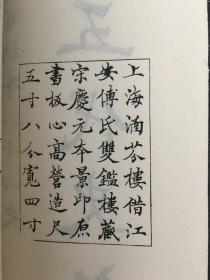 上海涵芬樓借江
安傅氏雙鑑樓藏
宋慶元本景印原
書板心高營造尺
五寸八分寬四寸